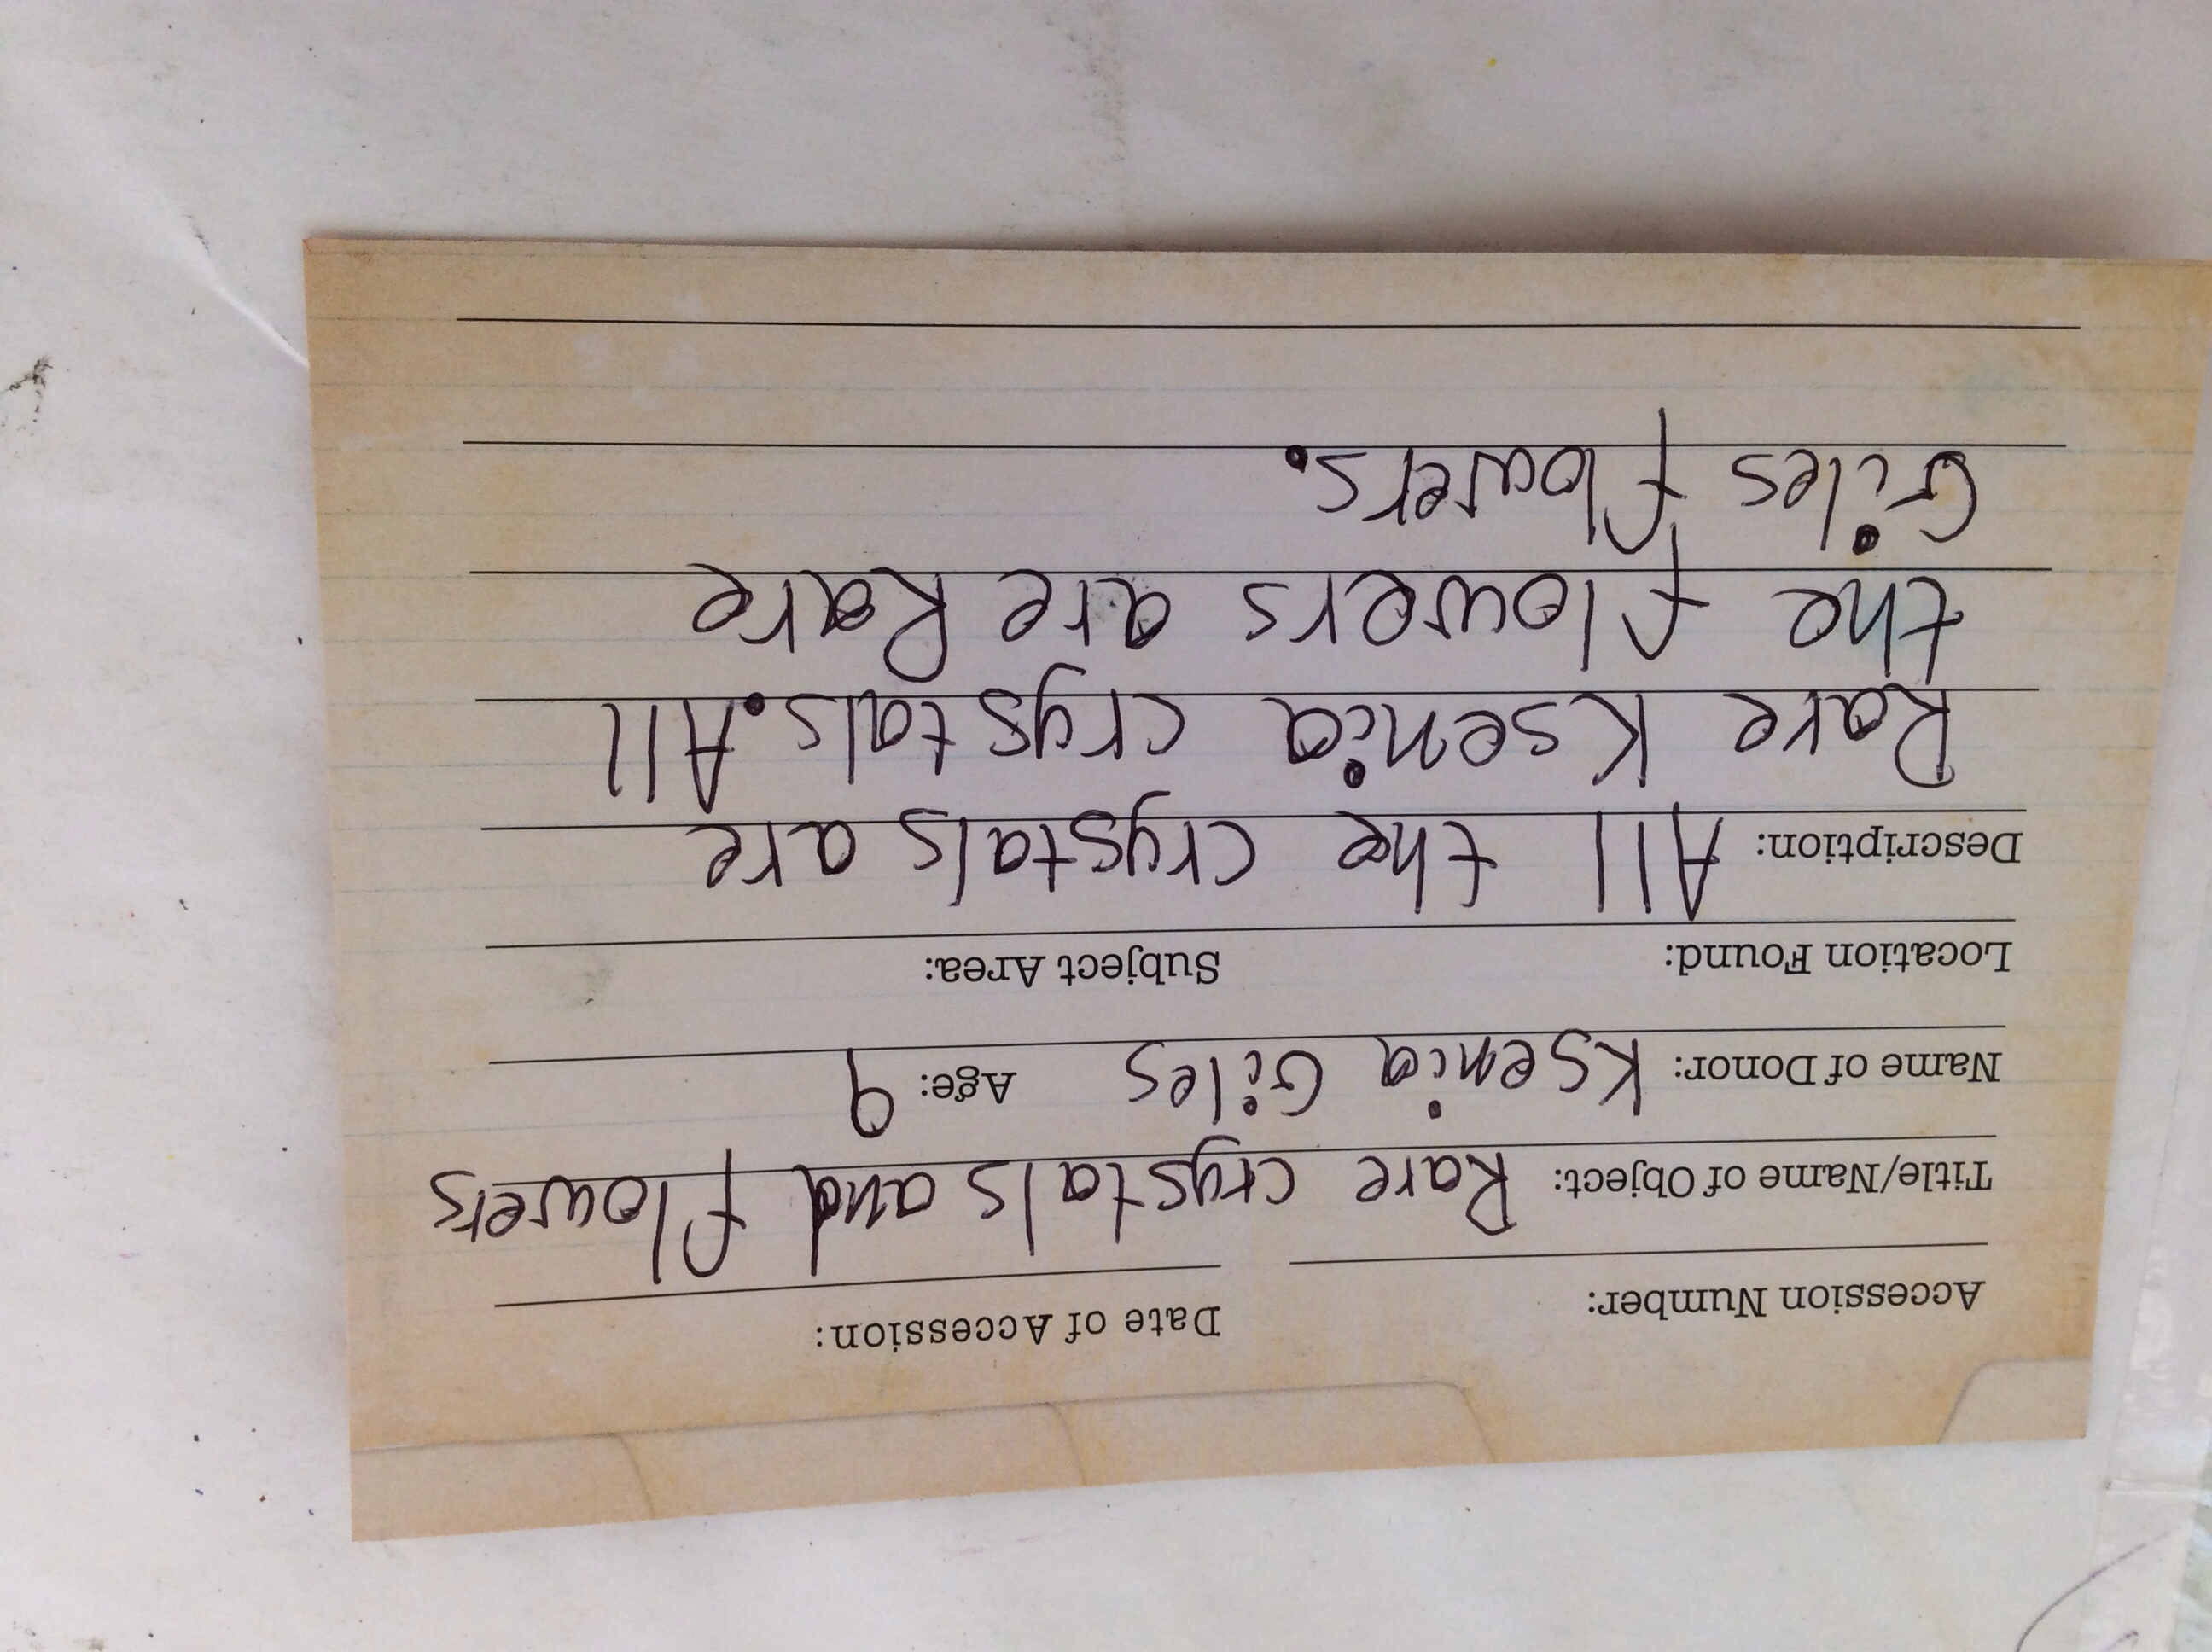 Accession Number: Date of Accession:
Title/Name of Object: Rare crystals and flowers
Name of Donor: Ksenia Giles Age: 9
Location Found: Subject Area:
Description: All the crystals are
Rare Ksenia crystals. All
the flowers are Rare
Giles flowers.